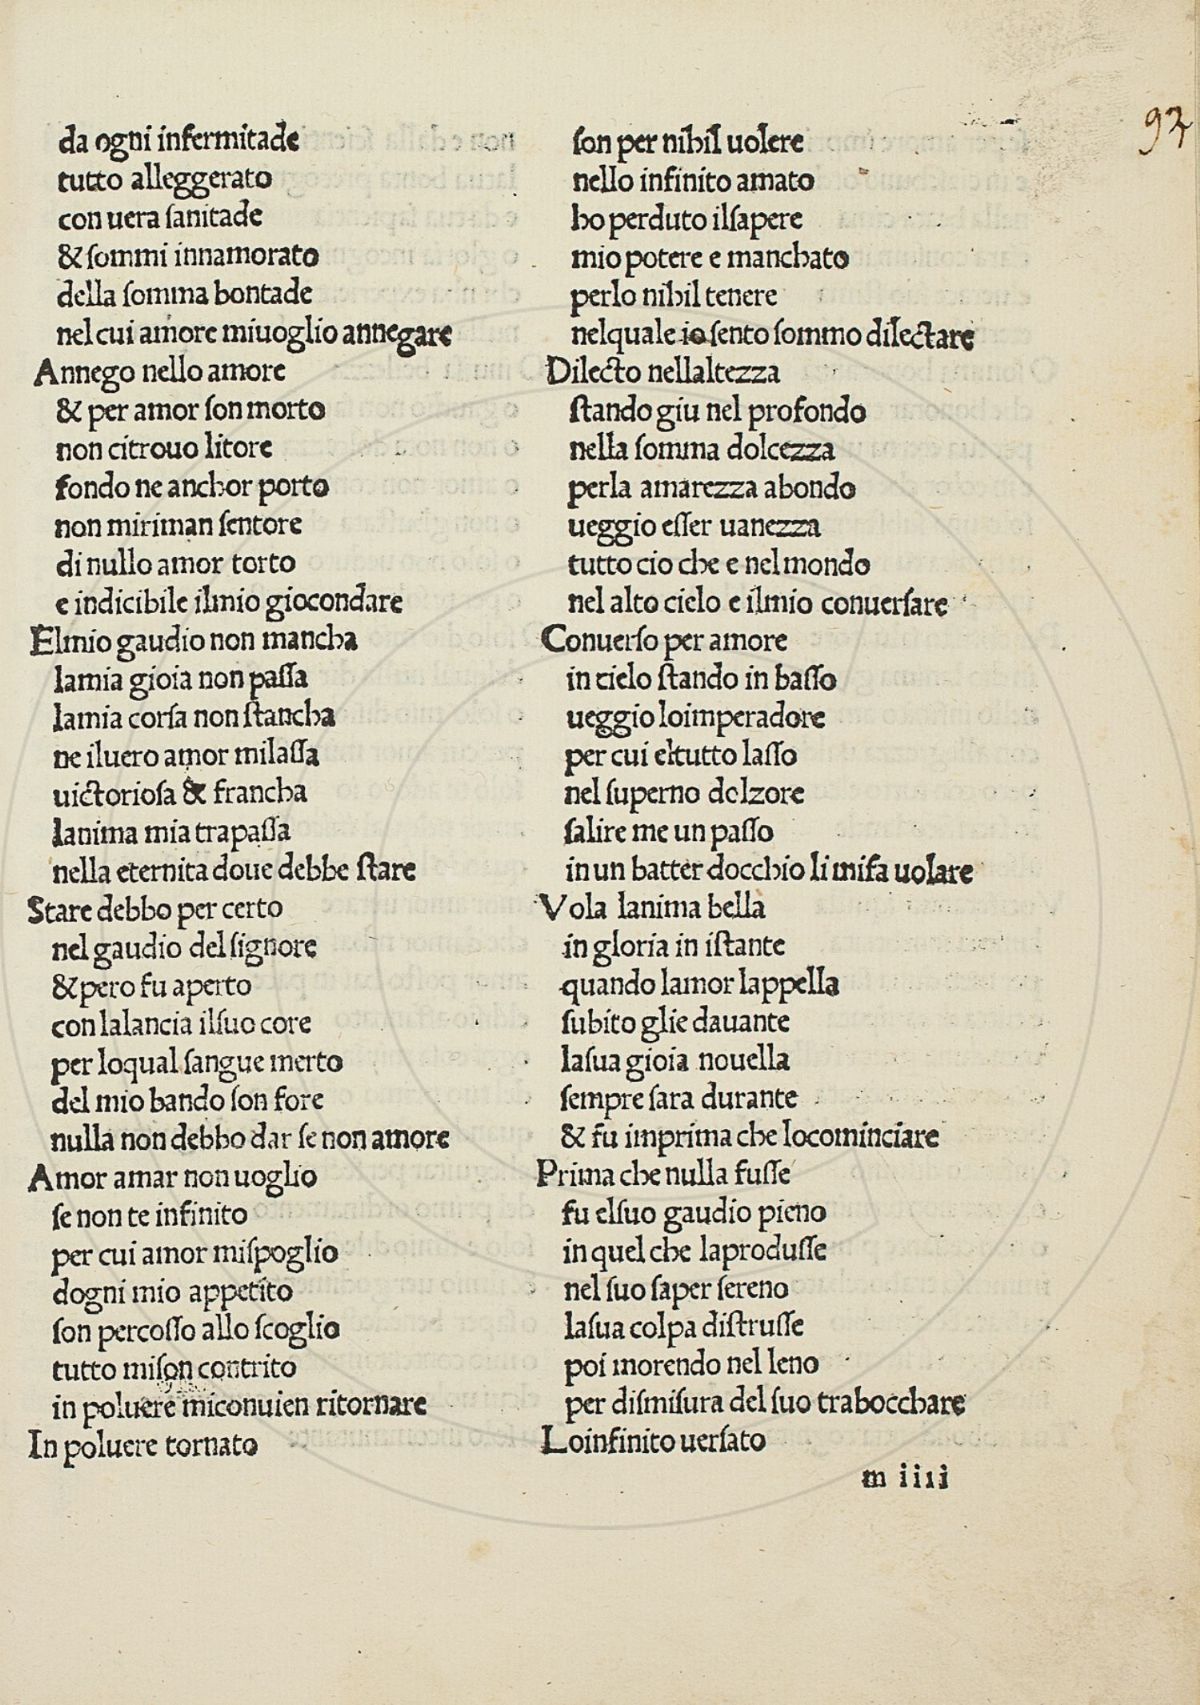 92
da ogni infermitade
tutto alleggerato
con uera sanitade
& sommi innamorato
della somma bontade
nel cui amore miuoglio annegare
Annego nello amore
& per amor son morto
non citrouo litore
fondo ne anchor porto
non miriman sentore
di nullo amor torto
e indicibile ilmio giocondare
Elmio gaudio non mancha
lamia gioia non passa
lamia corsa non stancha
ne iluero amor milassa
uictoriosa & francha
lanima mia trapassa
nella eternita doue debbe stare
Stare debbo per certo
nel gaudio del signore
& pero fu aperto
con lalancia ilsuo core
per loqual sangue merto
del mio bando son fore
nulla non debbo dar se non amore
Amor amar non uoglio
se non te infinito
per cui amor mispoglio
dogni mio appetito
son percosso allo scoglio
tutto mison contrito
in poluere miconuien ritornare
In poluere tornato
son per nihil uolere
nello infinito amato
ho perduto ilsapere
mio potere e manchato
perlo nihil tenere
nelquale io sento sommo dilectare
Dilecto nellaltezza
stando giu nel profondo
nella somma dolcezza
perla amarezza abondo
ueggio esser uanezza
tutto cio che e nel mondo
nel alto cielo e ilmio conuersare
Conuerso per amore
in cielo stando in basso
ueggio loimperadore
per cui eltutto lasso
nel superno dolzore
salire me un passo
in un batter docchio li mifa uolare
Vola lanima bella
in gloria in istante
quando lamor lappella
subito glie dauante
lasua gioia nouella
sempre sara durante
& fu imprima che locominciare
Prima che nulla fusse
fu elsuo gaudio pieno
in quel che laprodusse
nel suo saper sereno
lasua colpa distrusse
poi morendo nel leno
per dismisura del suo trabocchare
Loinfinito uersato
m iiii